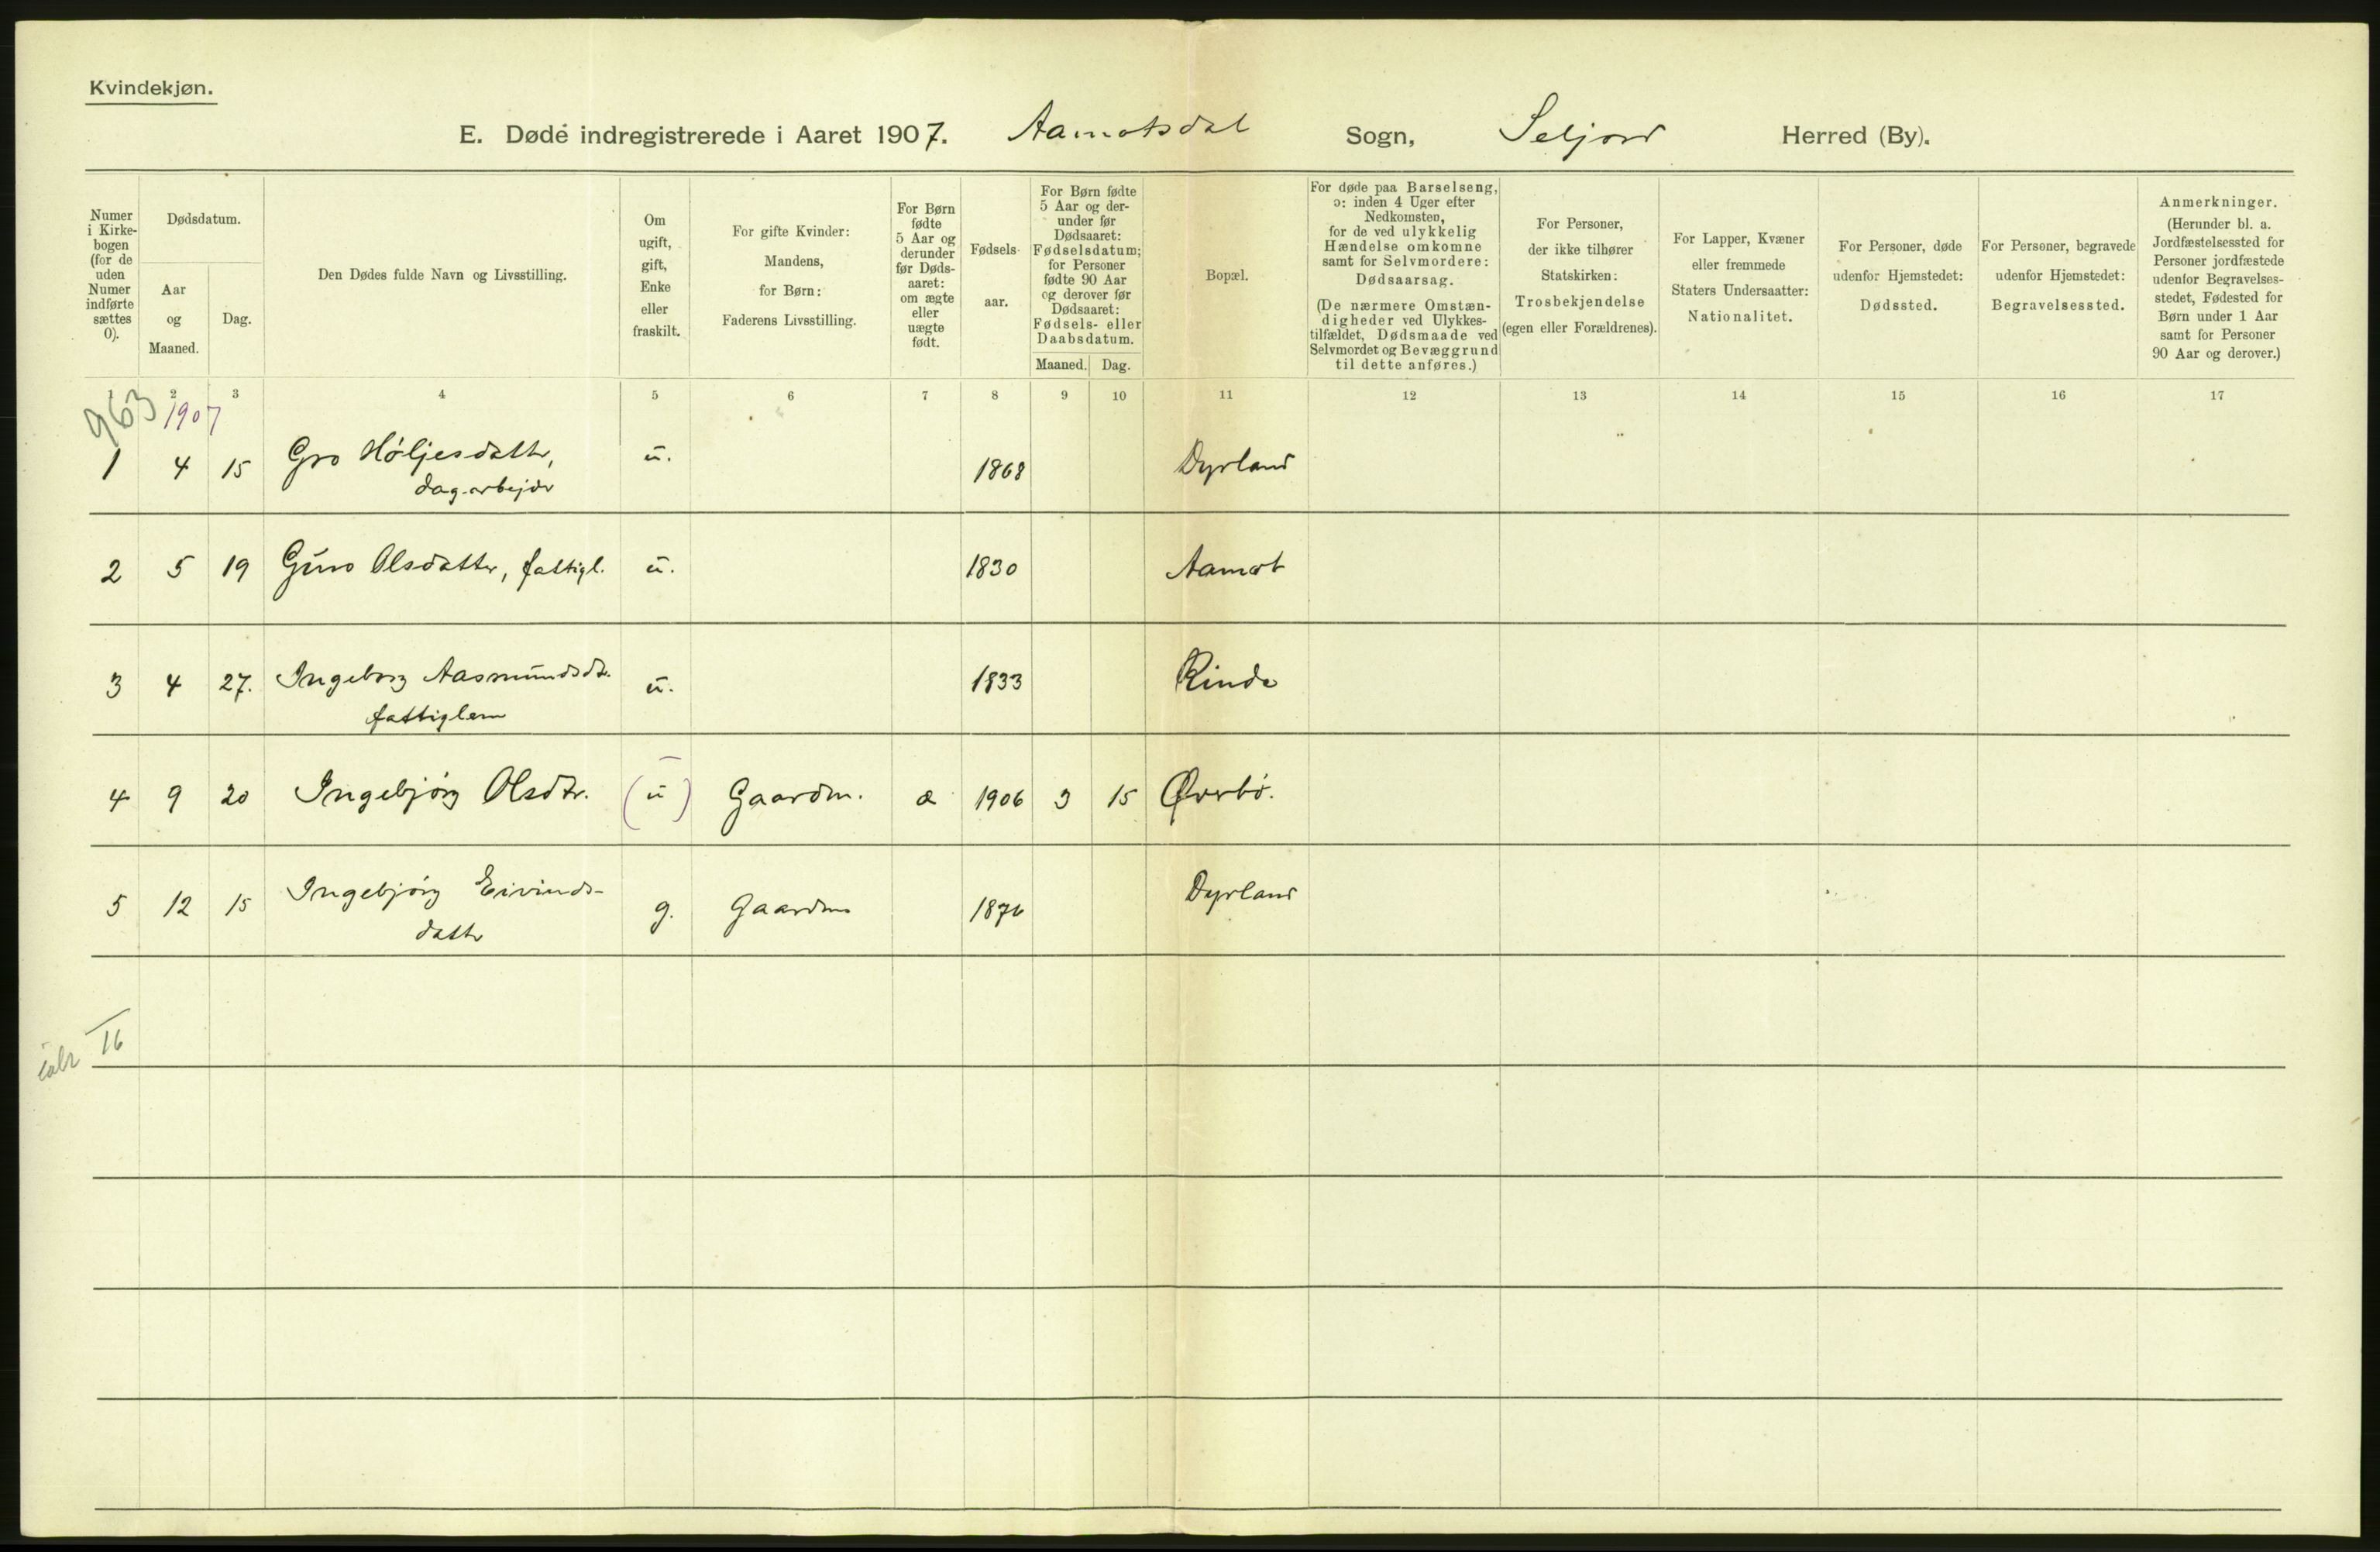 Kvindekjøn.
E. Døde indregistrerede i Aaret 1907. Aamotsdal Sogn, Seljord Herred (By).
Numer i Kirke-bogen (for de uden Numer indførte sættes 0).
Dødsdatum.
Aar og Maaned.
Dag.
Den Dødes fulde Navn og Livsstilling.
Om ugift, gift, Enke eller fraskilt.
For gifte Kvinder: Mandens, for Børn: Faderens Livsstilling.
For Børn fødte 5 Aar og derunder før Døds-aaret: om ægte eller uægte født.
Fødsels-aar.
For Børn fødte 5 Aar og der-under før Dødsaaret: Fødselsdatum; for Personer fødte 90 Aar og derover før Dødsaaret: Fødsels- eller Daabsdatum.
Maaned. Dag.
Bopæl.
For døde paa Barselseng, ɔ: inden 4 Uger efter Nedkomsten, for de ved ulykkelig Hændelse omkomne samt for Selvmordere: Dødsaarsag. (De nærmere Omstæn-digheder ved Ulykkes-tilfældet, Dødsmaade ved Selvmordet og Bevæggrund til dette anføres.)
For Personer, der ikke tilhører Statskirken: Trosbekjendelse (egen eller Forældrenes).
For Lapper, Kvæner eller fremmede Staters Undersaatter: Nationalitet.
For Personer, døde udenfor Hjemstedet: Dødssted.
For Personer, begravede udenfor Hjemstedet: Begravelsessted.
Anmerkninger. (Herunder bl. a. Jordfæstelsessted for Personer jordfæstede udenfor Begravelses-stedet, Fødested for Børn under 1 Aar samt for Personer 90 Aar og derover.)
1 2 3 4 5 6 7 8 9 10 11 12 13 14 15 16 17
963 1907
1 4 15 Gro Höljesdatter, u. 1868 Dyrland
dagarbejder
2 5 19 Guro Olsdatter, fattigl. u. 1830 Aamot
3 4 27. Ingeborg Aasmundsdtr. u. 1833 Rinde
fattiglem
4 9 20 Ingebjörg Olsdtr. (u) Gaardm. æ 1906 3 15 Øverbö.
5 12 15 Ingebjörg Eivinds- g. Gaardm 1876 Dyrland
datter
16